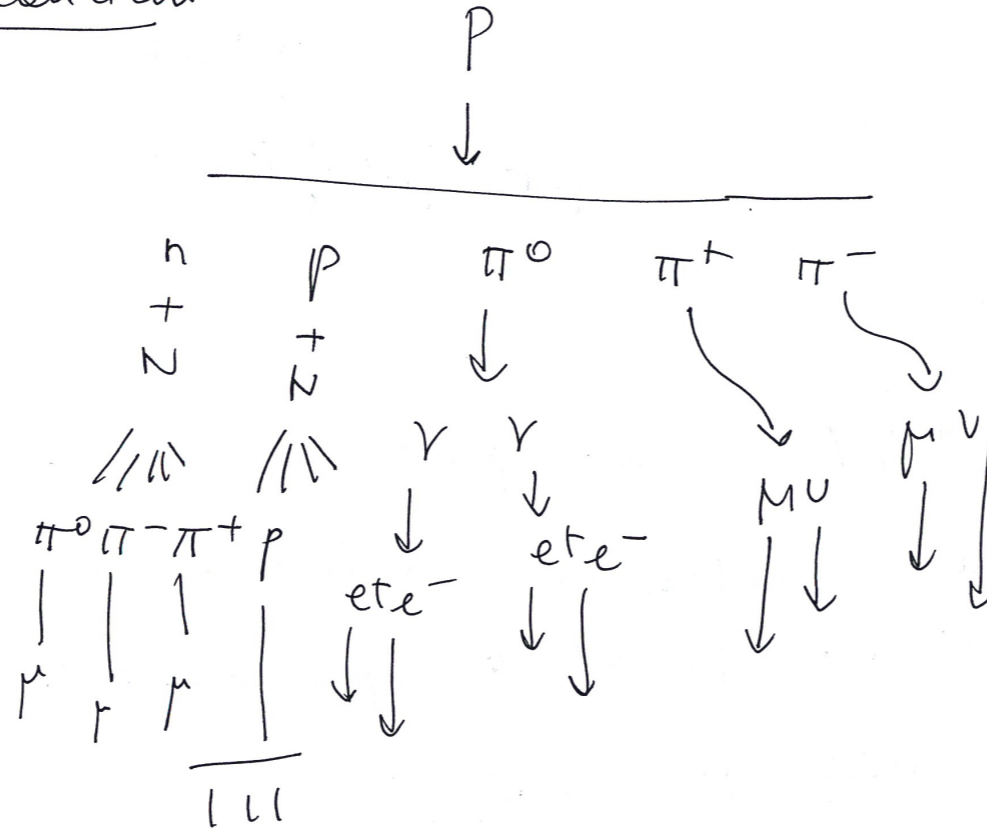 P
n p π⁰ π⁺ π⁻
+ +
N N
γ γ μ ν
μ ν
π⁰ π⁻ π⁺ p e⁺e⁻
e⁺e⁻
μ μ μ